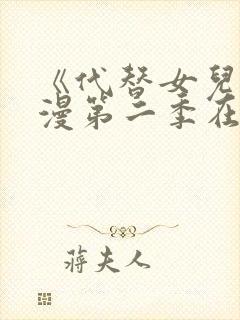 《代替女兒
漫第二季在
蔣夫人